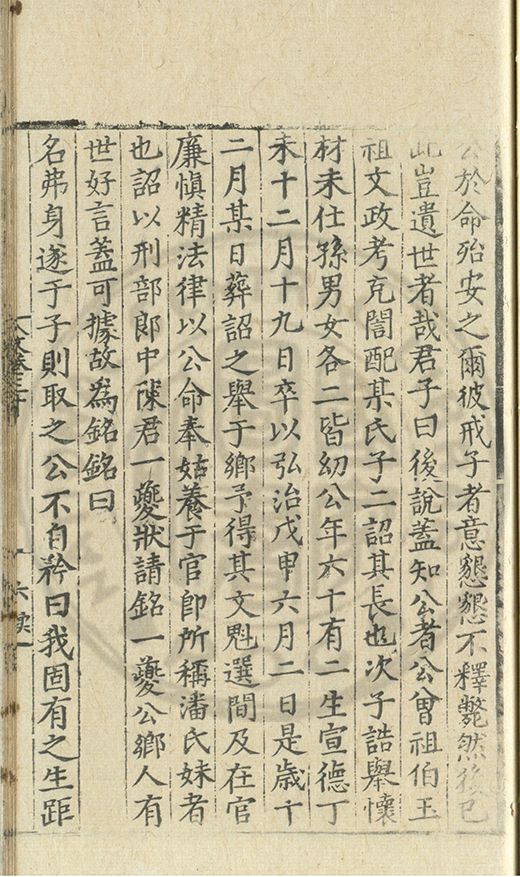 公於命殆安之爾彼戒子者意懇懇不釋斃然後已
此豈遺世者哉君子曰後說蓋知公者公曾祖伯玉
祖文政考克誾配某氏子二詔其長也次子誥舉懷
材未仕孫男女各二皆幼公年六十有二生宣德丁
未十二月十九日卒以弘治戊申六月二日是歲十
二月某日葬詔之舉于鄉予得其文魁選間及在官
廉慎精法律以公命奉姑養于官卽所稱潘氏妹者
也詔以刑部郎中陳君一夔狀請銘一夔公鄉人有
世好言蓋可據故爲銘銘曰
名弗身遂于子則取之公不自矜曰我固有之生距
文卷三十
六